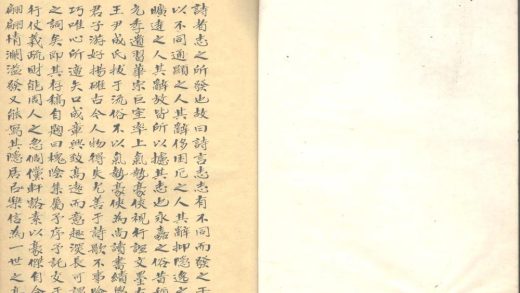 詩者志之所發也故曰詩言志志有不同而發之于
以不同通顯之人其辭侈困厄之人其辭抑隱逸之
曠達之人其辭放皆所以攄其志也永嘉之俗昔稱
季遺習華宗巨室率上氣勢豪俠視行誼文墨
王尹成氏拔于流俗不以氣勢豪俠為尚讀書績
君子游好揚確古今人物得失尤善于詩歌不事險
巧唯心所適矢口成章興致高遠而意趣深長可謂
之詞矣即其存稿自題曰槐陰集屬予序予託交于
行使義疏財能周人之急倜儻軒豁素以豪傑自命
翩翩情瀾溢發又能寫其隱居之樂信為一世之高